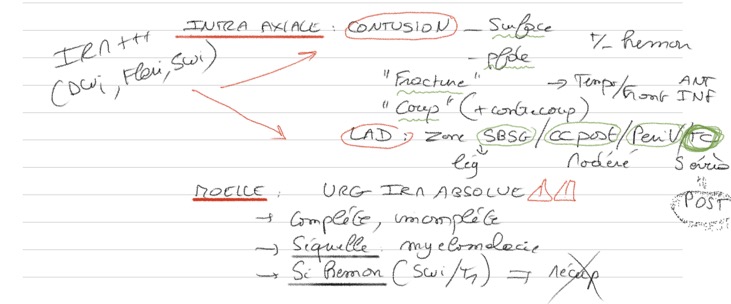 INTRA AXIALE : CONTUSION - Surface
IRM +++
(DWI, Flair, SWI)
- pfde
+/- hemorr
"Fracture" → Tempo/Front ANT INF
"Coup" (+ contrecoup)
LAD : Zone SBSG / CC post / Peri V / TC
lég Modéré Sévère
POST
MOELLE : URG IRM ABSOLUE
→ Complète, incomplète
→ Séquelle : myelomalacie
→ Si Hemorr (SWI/T1) ⇒ récup